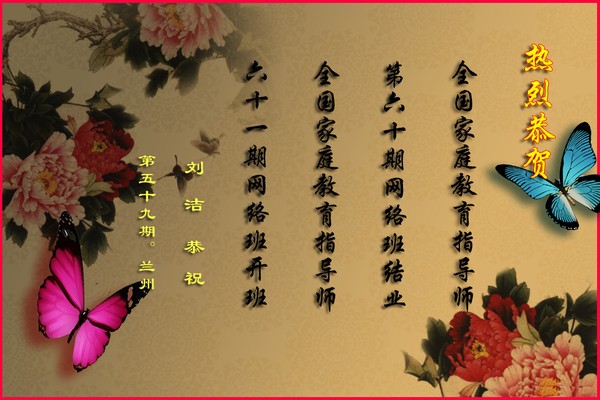 热烈恭贺
全国家庭教育指导师
第六十期网络班结业
全国家庭教育指导师
六十一期网络班开班
刘洁 恭祝
第五十九期。兰州